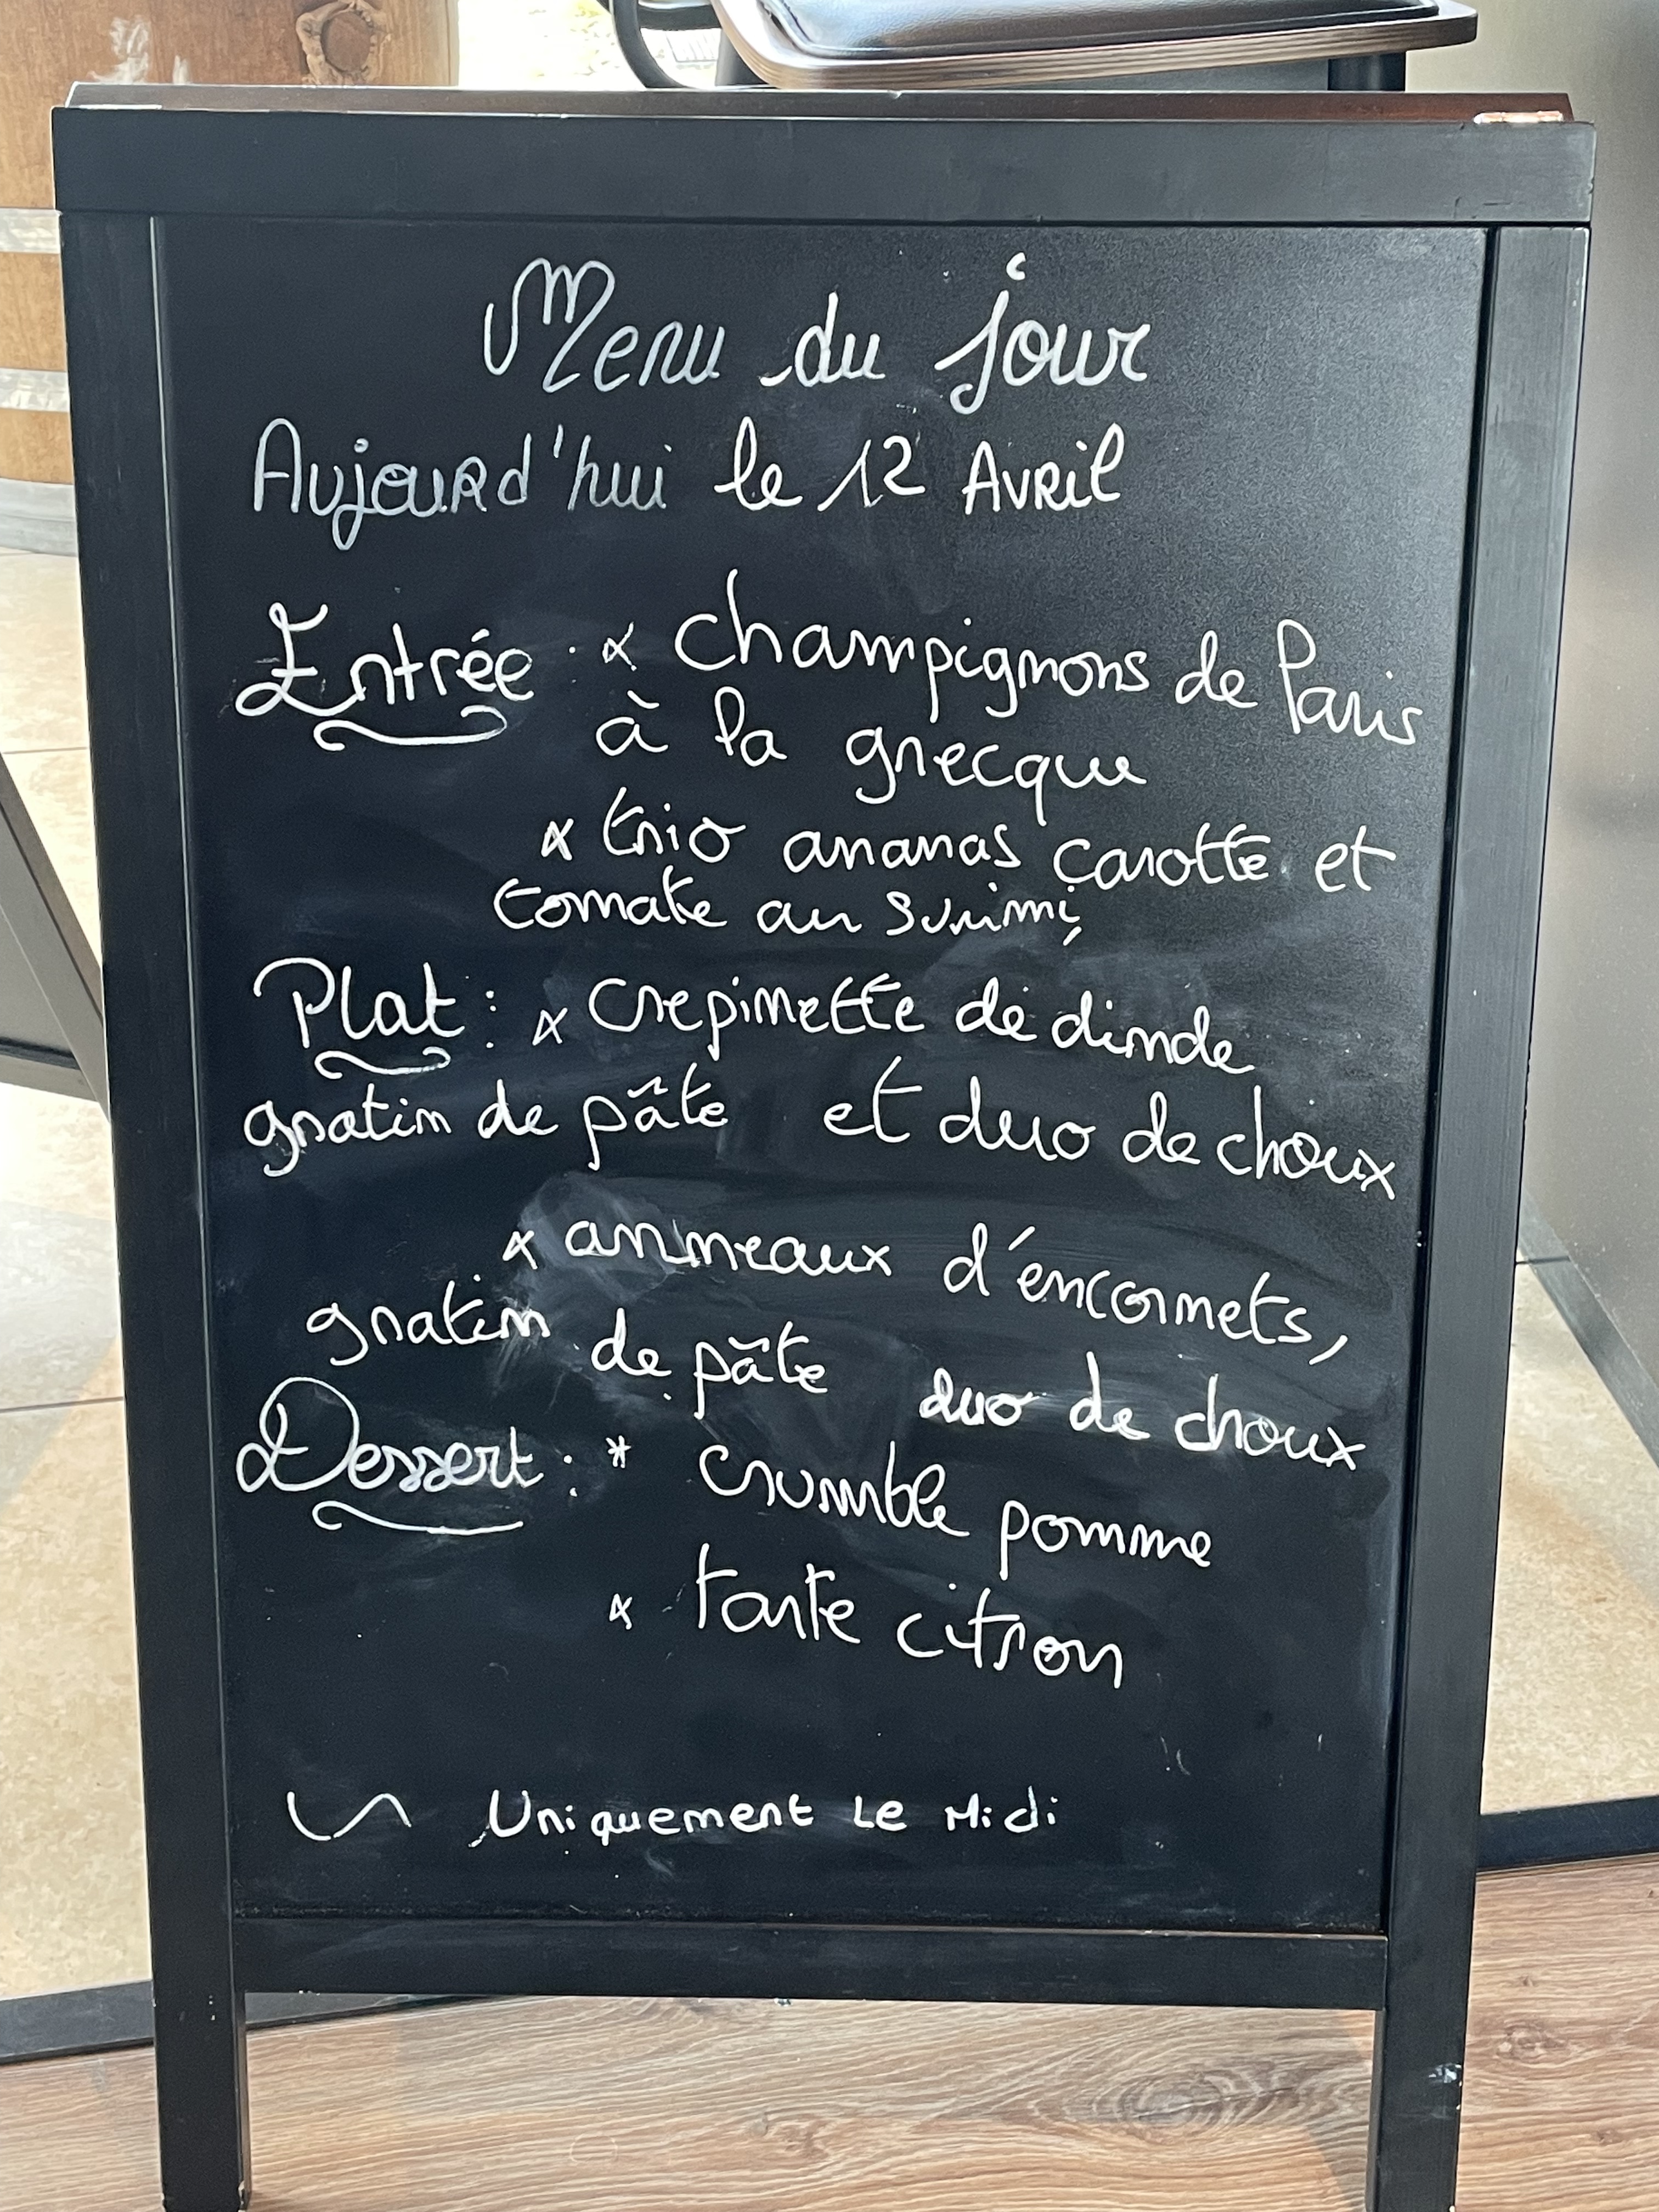 Menu du jour
Aujourd'hui le 12 Avril
Entrée : * champignons de Paris
à la grecque
* trio ananas carotte et
tomate au surimi,
Plat : * crepinette de dinde
gratin de pâte et duo de choux
* anneaux d'éncornets,
gratin de pâte duo de choux
Dessert : * crumble pomme
* tarte citron
Uniquement Le Midi